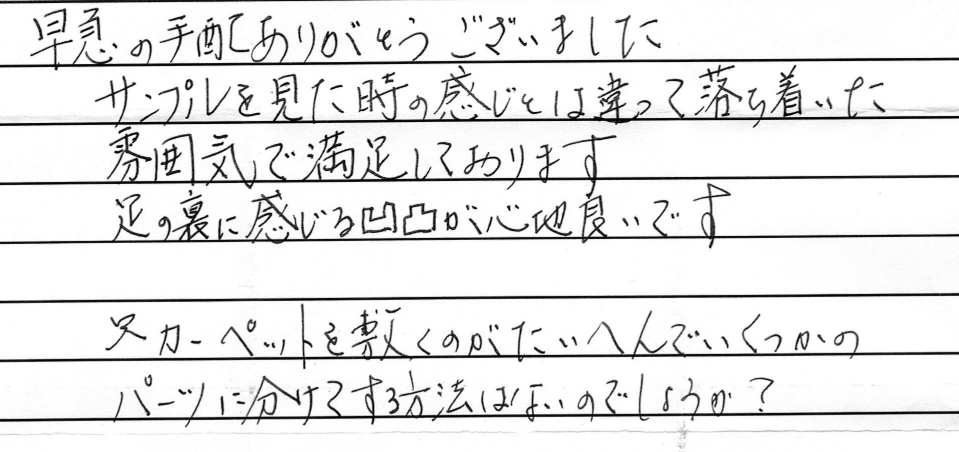 早急の手配ありがとうございました
サンプルを見た時の感じとは違って落ち着いた
雰囲気で満足しております
足の裏に感じる凹凸が心地良いです
カーペットを敷くのがたいへんでいくつかの
パーツに分けてする方法はないのでしょうか?